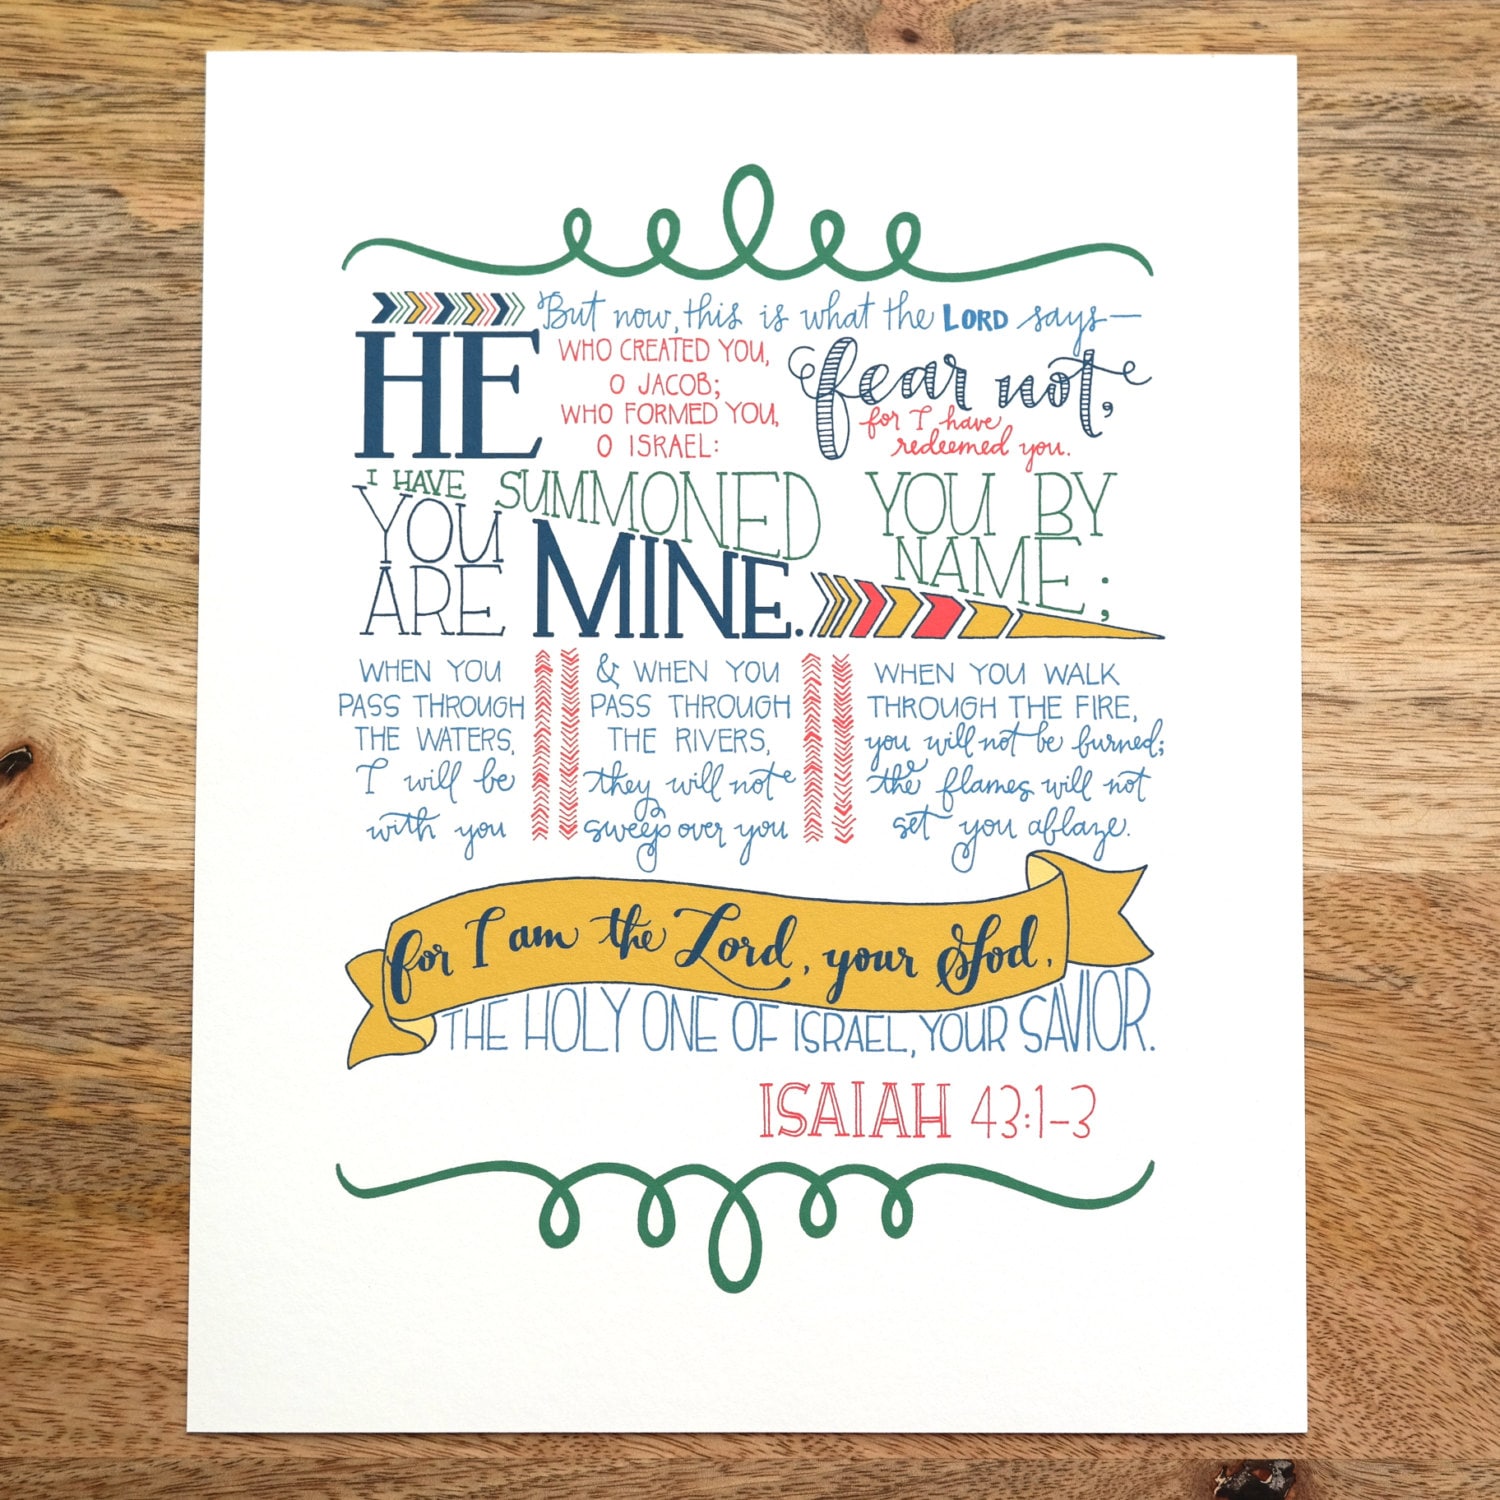 But now, this is what the LORD says—
HE
WHO CREATED YOU,
O JACOB;
WHO FORMED YOU,
O ISRAEL:
fear not,
for I have
redeemed you.
I HAVE SUMMONED YOU BY
NAME;
YOU
ARE MINE.
WHEN YOU
PASS THROUGH
THE WATERS,
I will be
with you
& WHEN YOU
PASS THROUGH
THE RIVERS,
they will not
sweep over you
WHEN YOU WALK
THROUGH THE FIRE,
you will not be burned;
the flames will not
set you ablaze.
for I am the Lord, your God,
THE HOLY ONE OF ISRAEL, YOUR SAVIOR.
ISAIAH 43:1-3